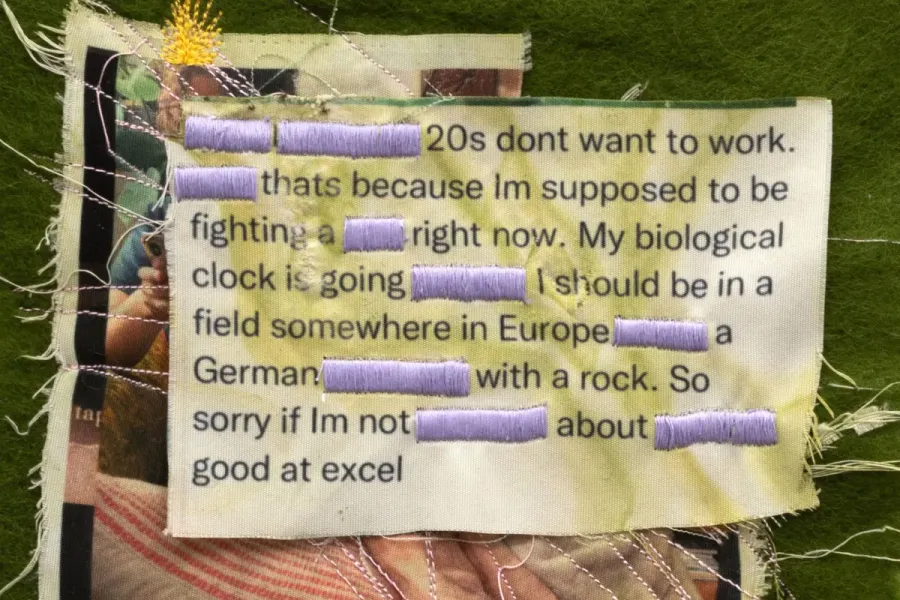 20s dont want to work.
thats because Im supposed to be
fighting a right now. My biological
clock is going I should be in a
field somewhere in Europe a
German with a rock. So
sorry if Im not about
good at excel
tap